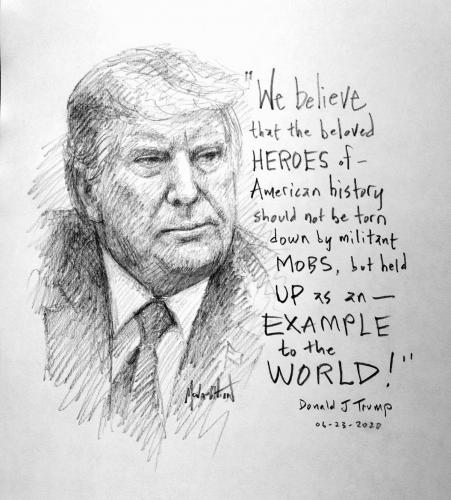 "We believe
that the beloved
HEROES of —
American history
should not be torn
down by militant
MOBS, but held
UP as an —
EXAMPLE
to the
WORLD!"
Donald J Trump
06-23-2020